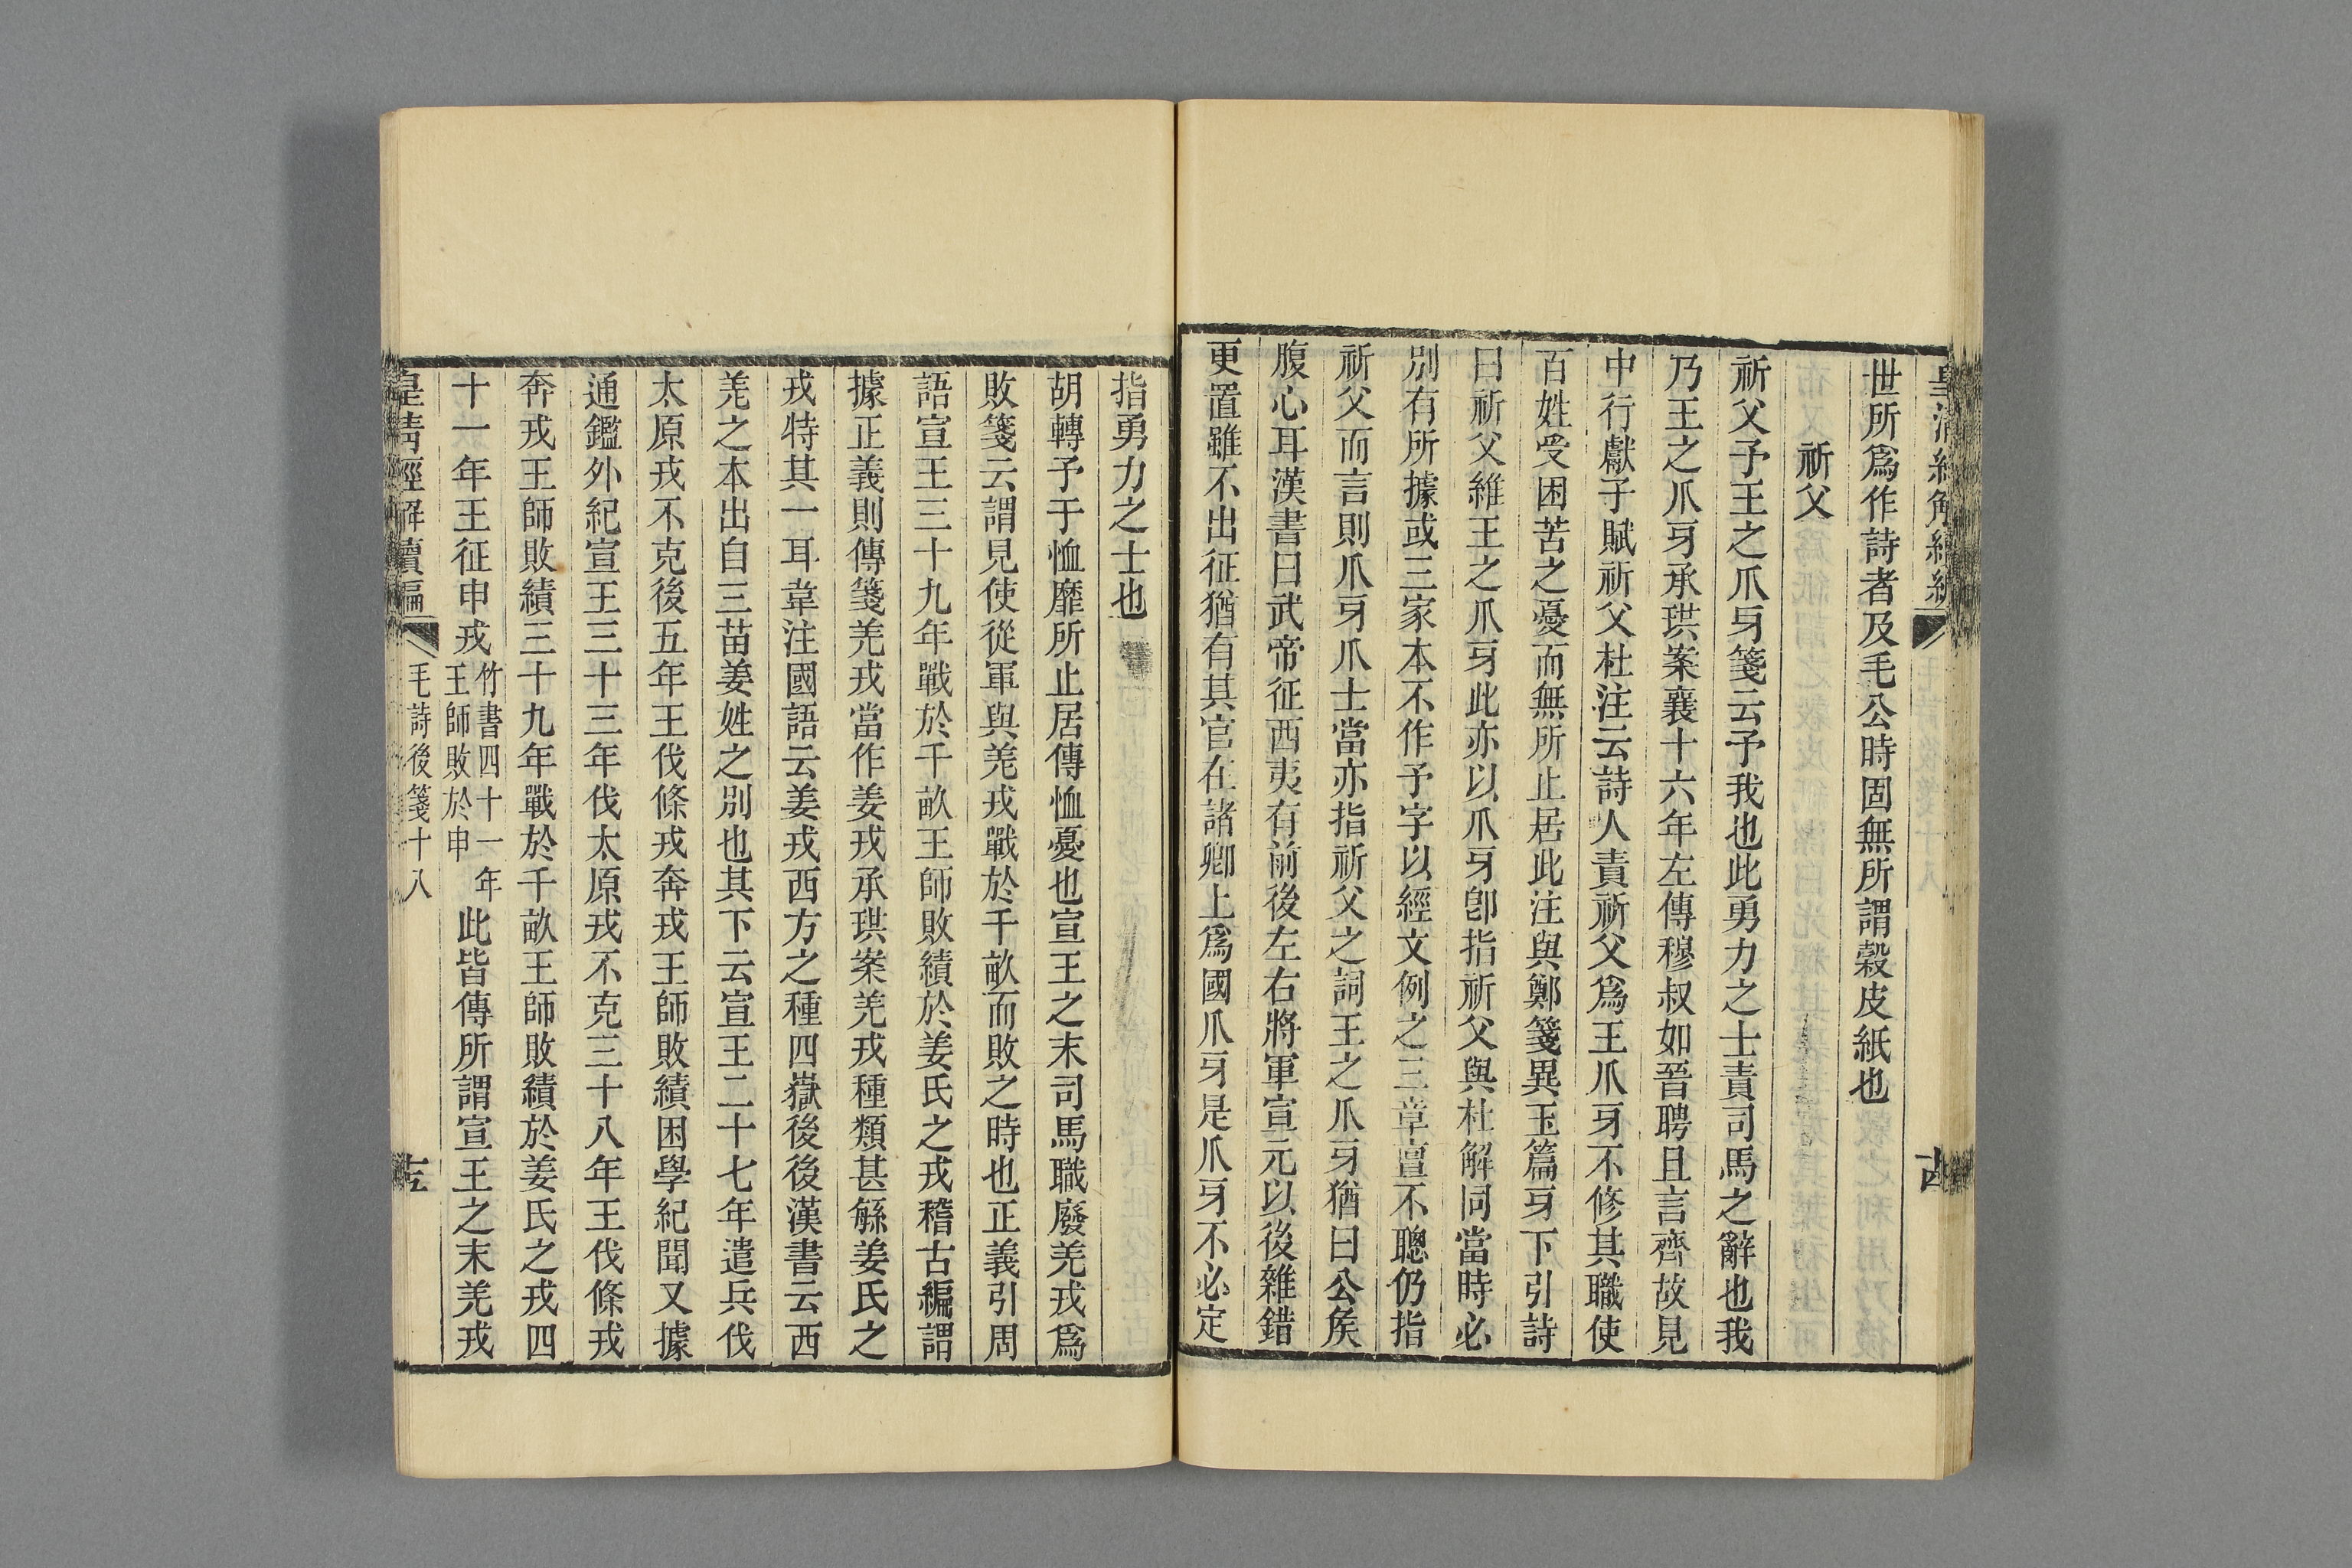 世所爲作詩者及毛公時固無所謂榖皮紙也
祈父
祈父予王之爪牙箋云予我也此勇力之士責司馬之辭也我
乃王之爪牙承珙案襄十六年左傳穆叔如晉聘且言齊故見
中行獻子賦祈父杜注云詩人責祈父爲王爪牙不修其職使
百姓受困苦之憂而無所止居此注與鄭箋異玉篇牙下引詩
曰祈父維王之爪牙此亦以爪牙卽指祈父與杜解同當時必
別有所據或三家本不作予字以經文例之三章亶不聰仍指
祈父而言則爪牙爪士當亦指祈父之詞王之爪牙猶曰公矦
腹心耳漢書曰武帝征西夷有前後左右將軍宣元以後雜錯
更置雖不出征猶有其官在諸卿上爲國爪牙是爪牙不必定
指勇力之士也
胡轉予于恤靡所止居傳恤憂也宣王之末司馬職廢羌戎爲
敗箋云謂見使從軍與羌戎戰於千畝而敗之時也正義引周
語宣王三十九年戰於千畝王師敗績於姜氏之戎稽古編謂
據正義則傳箋羌戎當作姜戎承珙案羌戎種類甚緐姜氏之
戎特其一耳韋注國語云姜戎西方之種四嶽後後漢書云西
羌之本出自三苗姜姓之別也其下云宣王二十七年遣兵伐
太原戎不克後五年王伐條戎奔戎王師敗績困學紀聞又據
通鑑外紀宣王三十三年伐太原戎不克三十八年王伐條戎
奔戎王師敗績三十九年戰於千畝王師敗績於姜氏之戎四
十一年王征申戎竹書四十一年王師敗於申此皆傳所謂宣王之末羌戎
皇清經解續編 毛詩後箋十八